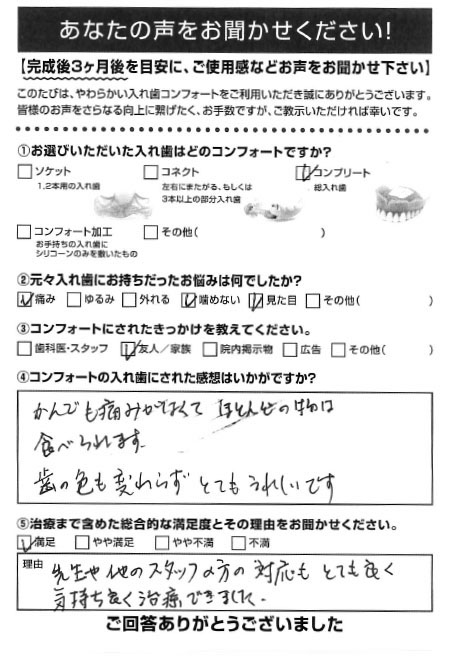 あなたの声をお聞かせください!
【完成後3ヶ月後を目安に、ご使用感などお声をお聞かせ下さい】
このたびは、やわらかい入れ歯コンフォートをご利用いただき誠にありがとうございます。
皆様のお声をさらなる向上に繋げたく、お手数ですが、ご教示いただければ幸いです。
①お選びいただいた入れ歯はどのコンフォートですか?
□ソケット
1,2本用の入れ歯
□コネクト
左右にまたがる、もしくは
3本以上の部分入れ歯
☑コンプリート
総入れ歯
□コンフォート加工
お手持ちの入れ歯に
シリコーンのみを敷いたもの
□その他( )
②元々入れ歯にお持ちだったお悩みは何でしたか?
☑痛み □ゆるみ □外れる ☑噛めない ☑見た目 □その他( )
③コンフォートにされたきっかけを教えてください。
□歯科医・スタッフ ☑友人/家族 □院内掲示物 □広告 □その他( )
④コンフォートの入れ歯にされた感想はいかがですか?
かんでも痛みがなくて ほとんどの物は
食べられます。
歯の色も変わらず とてもうれしいです
⑤治療まで含めた総合的な満足度とその理由をお聞かせください。
☑満足 □やや満足 □やや不満 □不満
理由 先生や他のスタッフの方の対応も とても良く
気持ち良く治療できました。
ご回答ありがとうございました